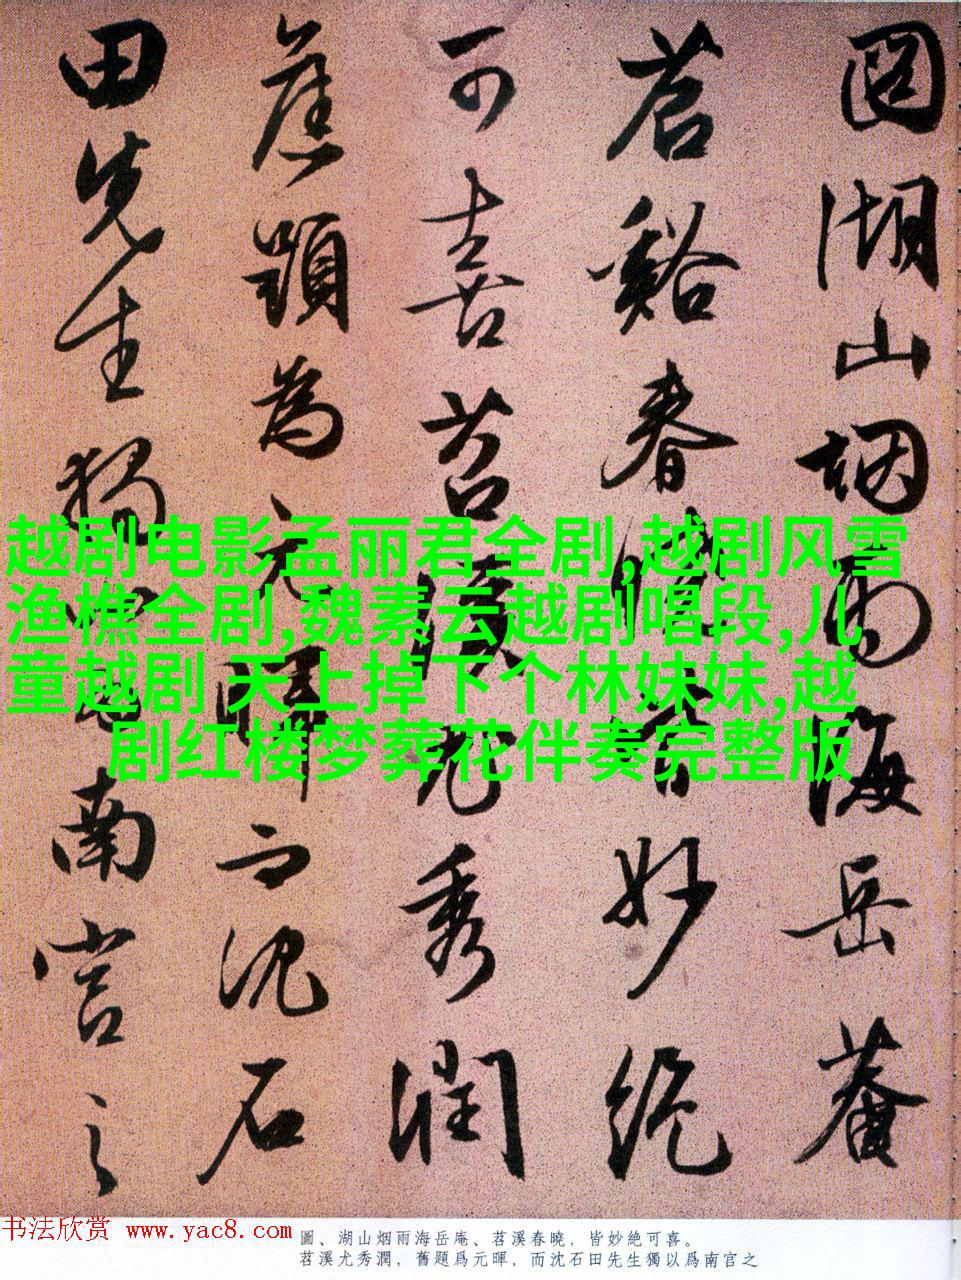 圖湖山烟雨海岳菴
苕谿春曉皆妙絕
可喜苕溪尤秀潤
舊題為元暉而沈石
田先生獨以為南宮之
越剧电影孟丽君全剧,越剧风雪
渔樵全剧,魏素云越剧唱段,儿
童越剧 天上掉下个林妹妹,越
剧红楼梦葬花伴奏完整版
书法欣赏 www.yac8.com
圖、湖山烟雨海岳庵、苕溪春曉，皆妙絶可喜。
苕溪尤秀潤，舊題爲元暉，而沈石田先生獨以爲南宫之